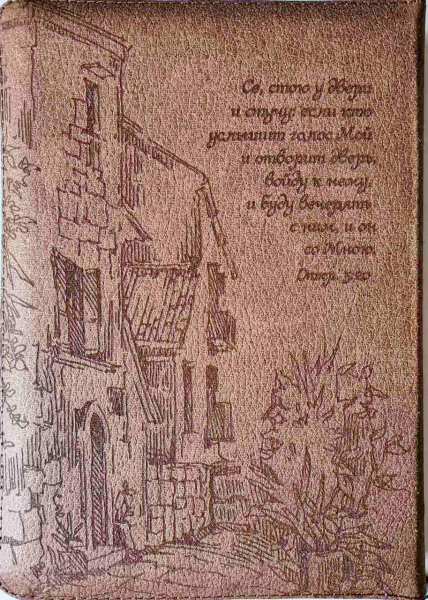 Се, стою у двери
и стучу: если кто
услышит голос Мой
и отворит дверь,
войду к нему,
и буду вечерять
с ним, и он
со Мною.
Откр. 3:20